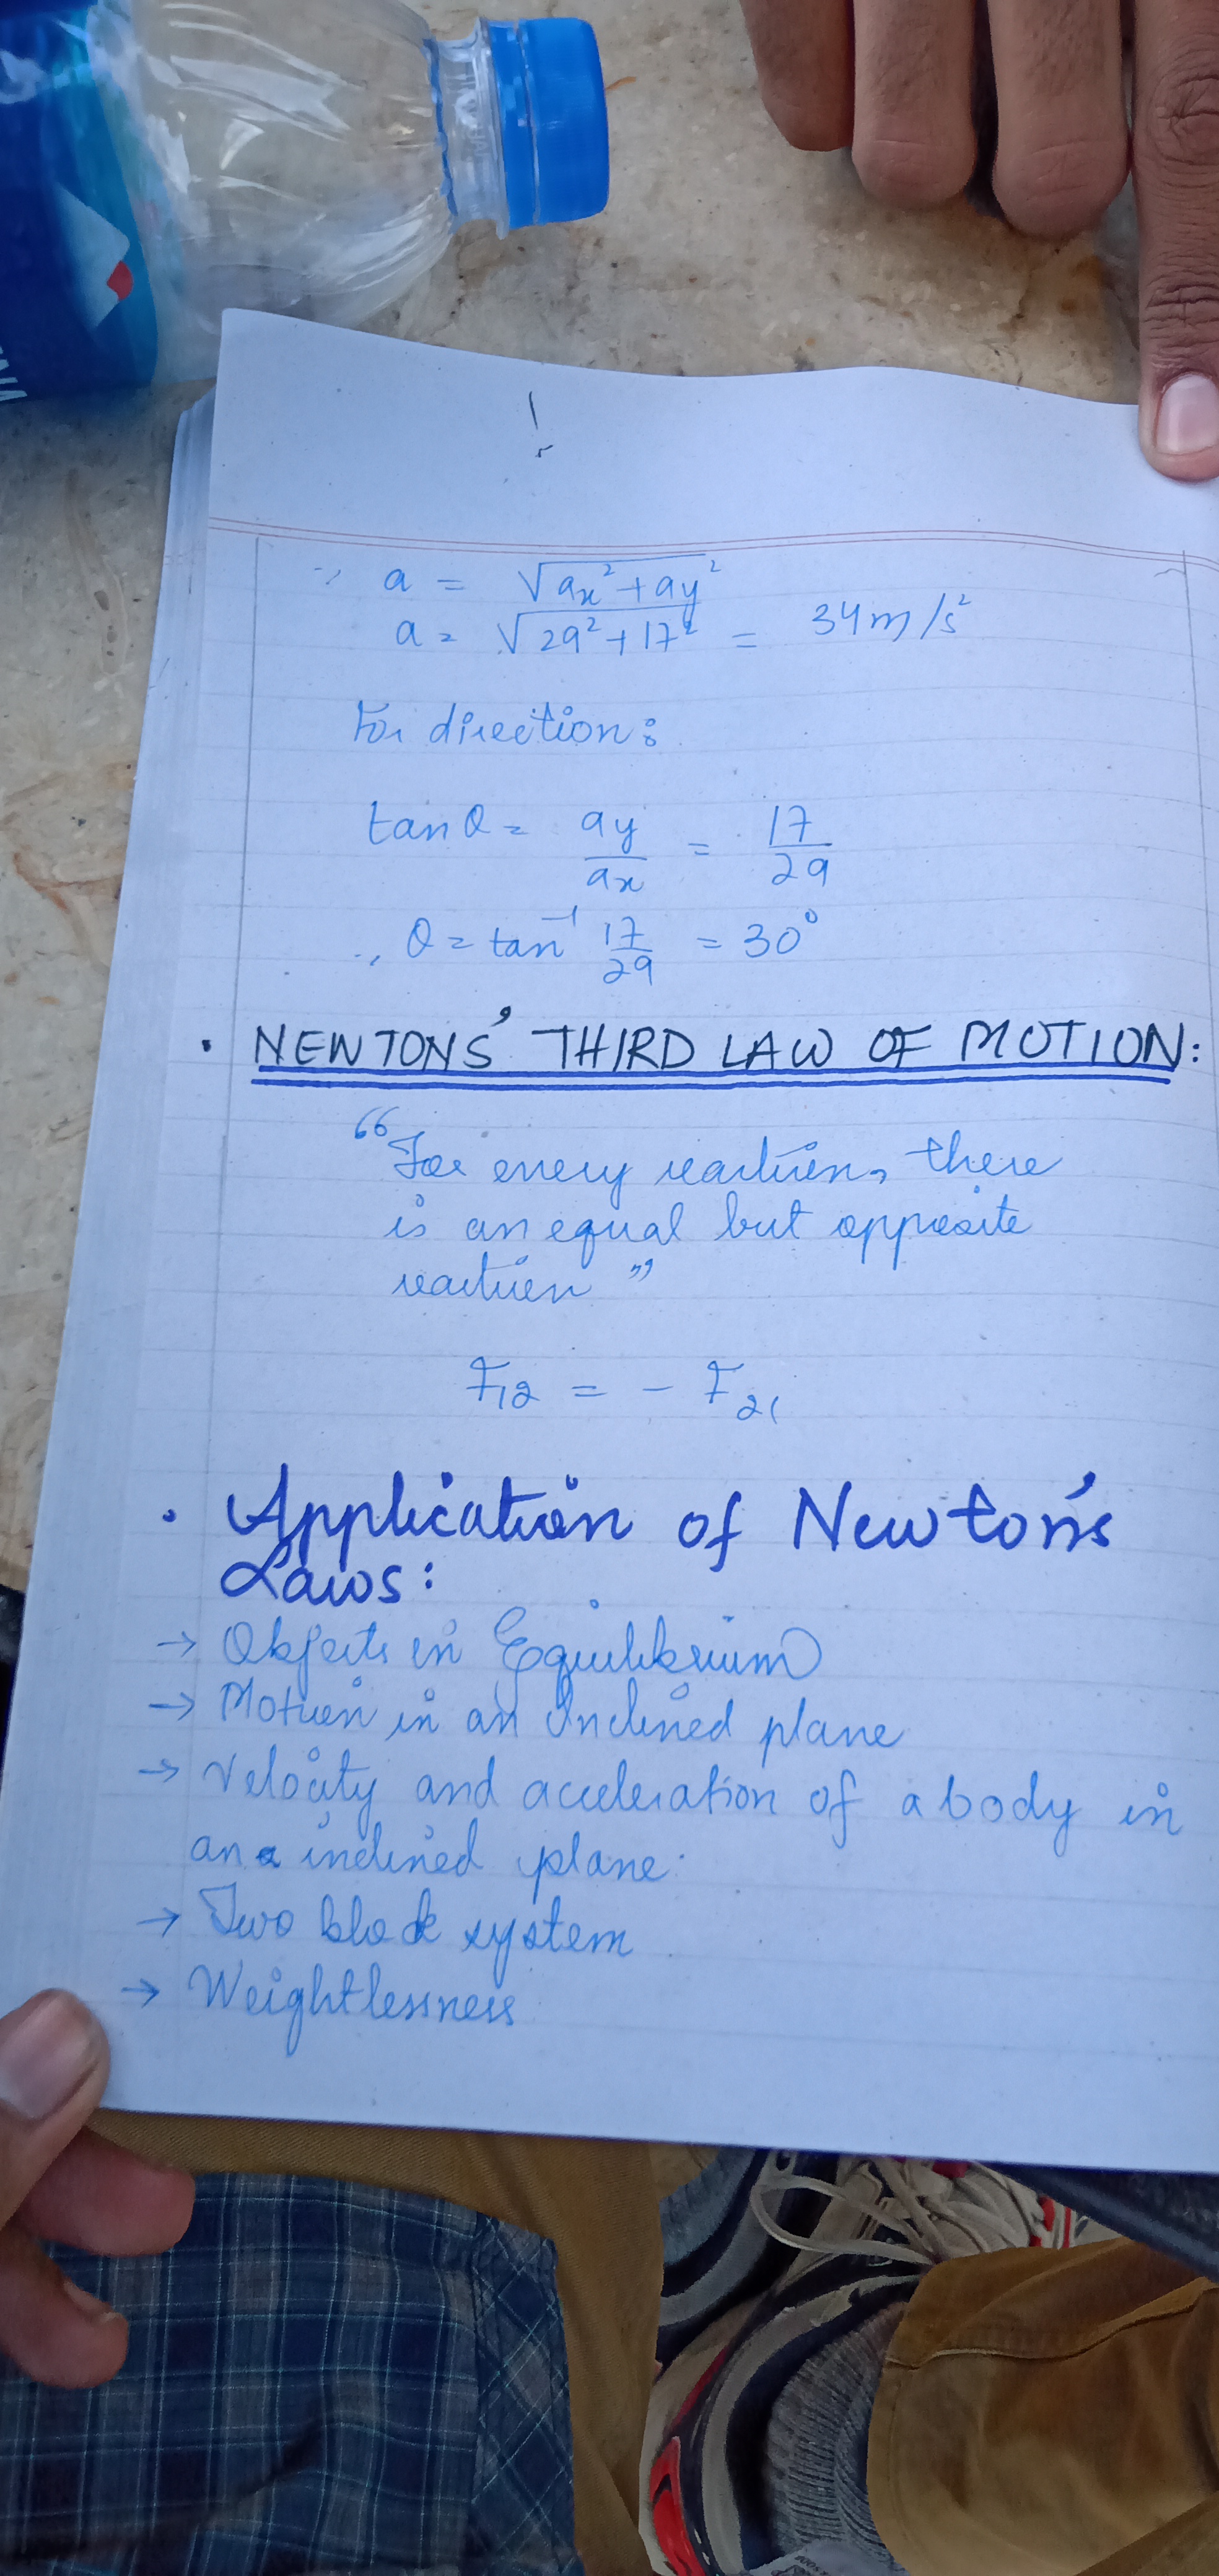 ∴ a = √ax² + ay²
a = √29² + 17² = 34 m/s²
For direction:
tanθ = ay/ax = 17/29
∴ θ = tan⁻¹ 17/29 = 30°
• NEWTONS' THIRD LAW OF MOTION:
"For every reaction, there
is an equal but opposite
reaction"
F12 = - F21
• Application of Newton's
Laws:
→ Objects in Equilibrium
→ Motion in an Inclined plane
→ Velocity and acceleration of a body in
an inclined plane.
→ Two block system
→ Weightlessness